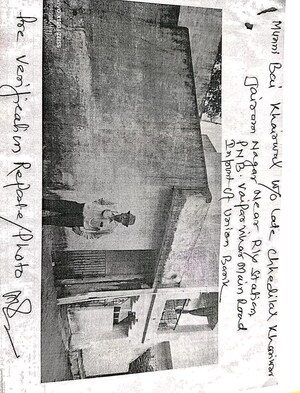 Munni Bai Khairwar W/o Late Chhedilal Khairwar
Jairam Nagar Near Rly Station
PNB. Main Road
Infront of Union Bank
Pre Verification Report/Photo